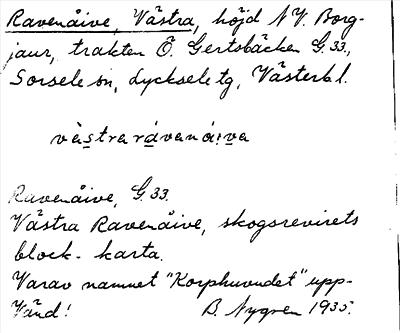 Ravenåive, Västra, höjd NV. Borg-
jaur, trakten Ö. Gertsbäcken G.33,
Sorsele sn, Lycksele tg, Västerb l.
västrarávaná:va
Ravenåive, G.33.
Västra Ravenåive, skogsrevirets
block-karta.
Varav namnet "Korphuvudet" upp-
Vänd! B. Nygren 1935.